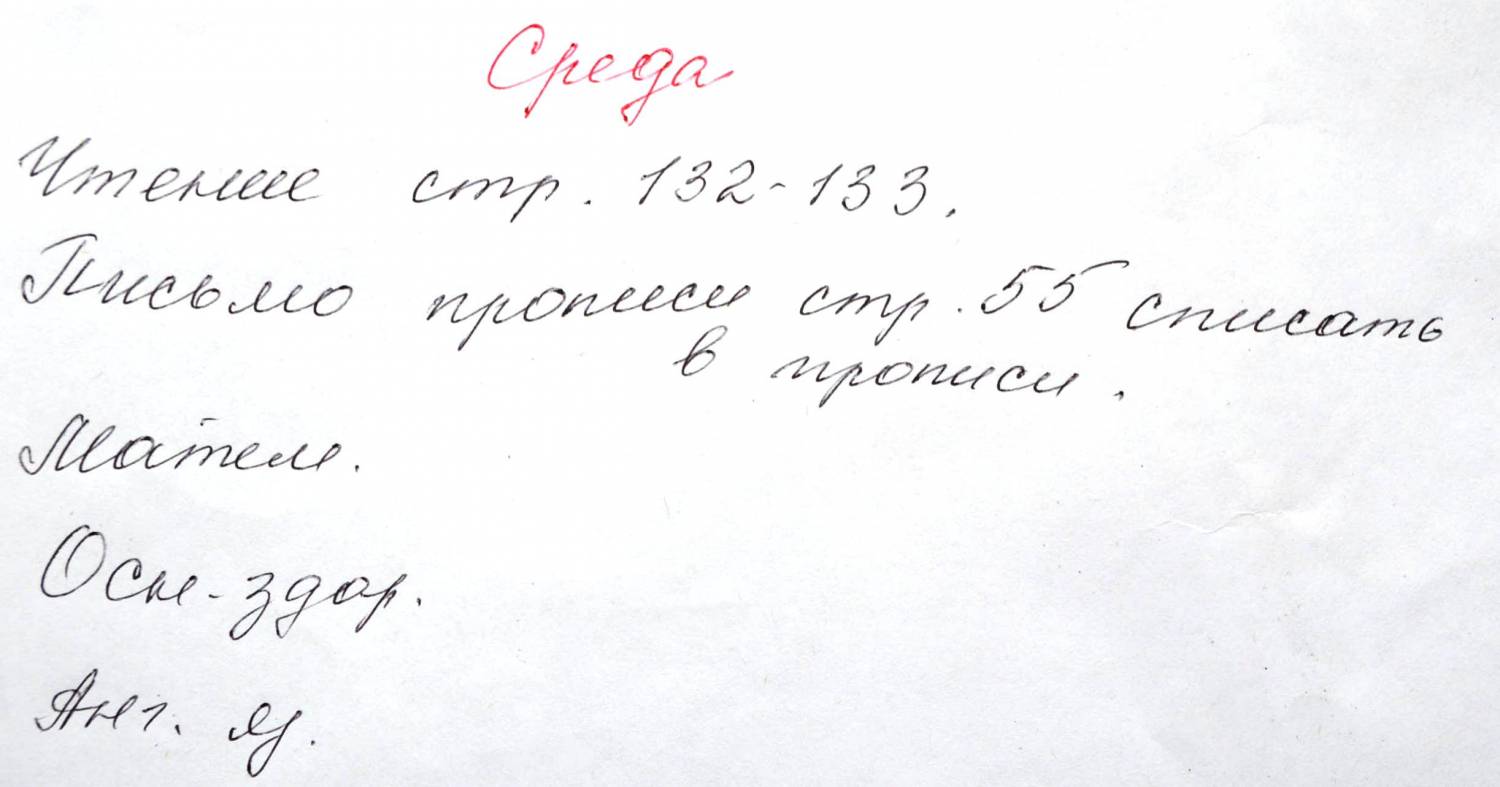 Среда
Чтение стр. 132-133.
Письмо прописи стр. 55 списать
в прописи.
Матем.
Осн-здор.
Анг. яз.